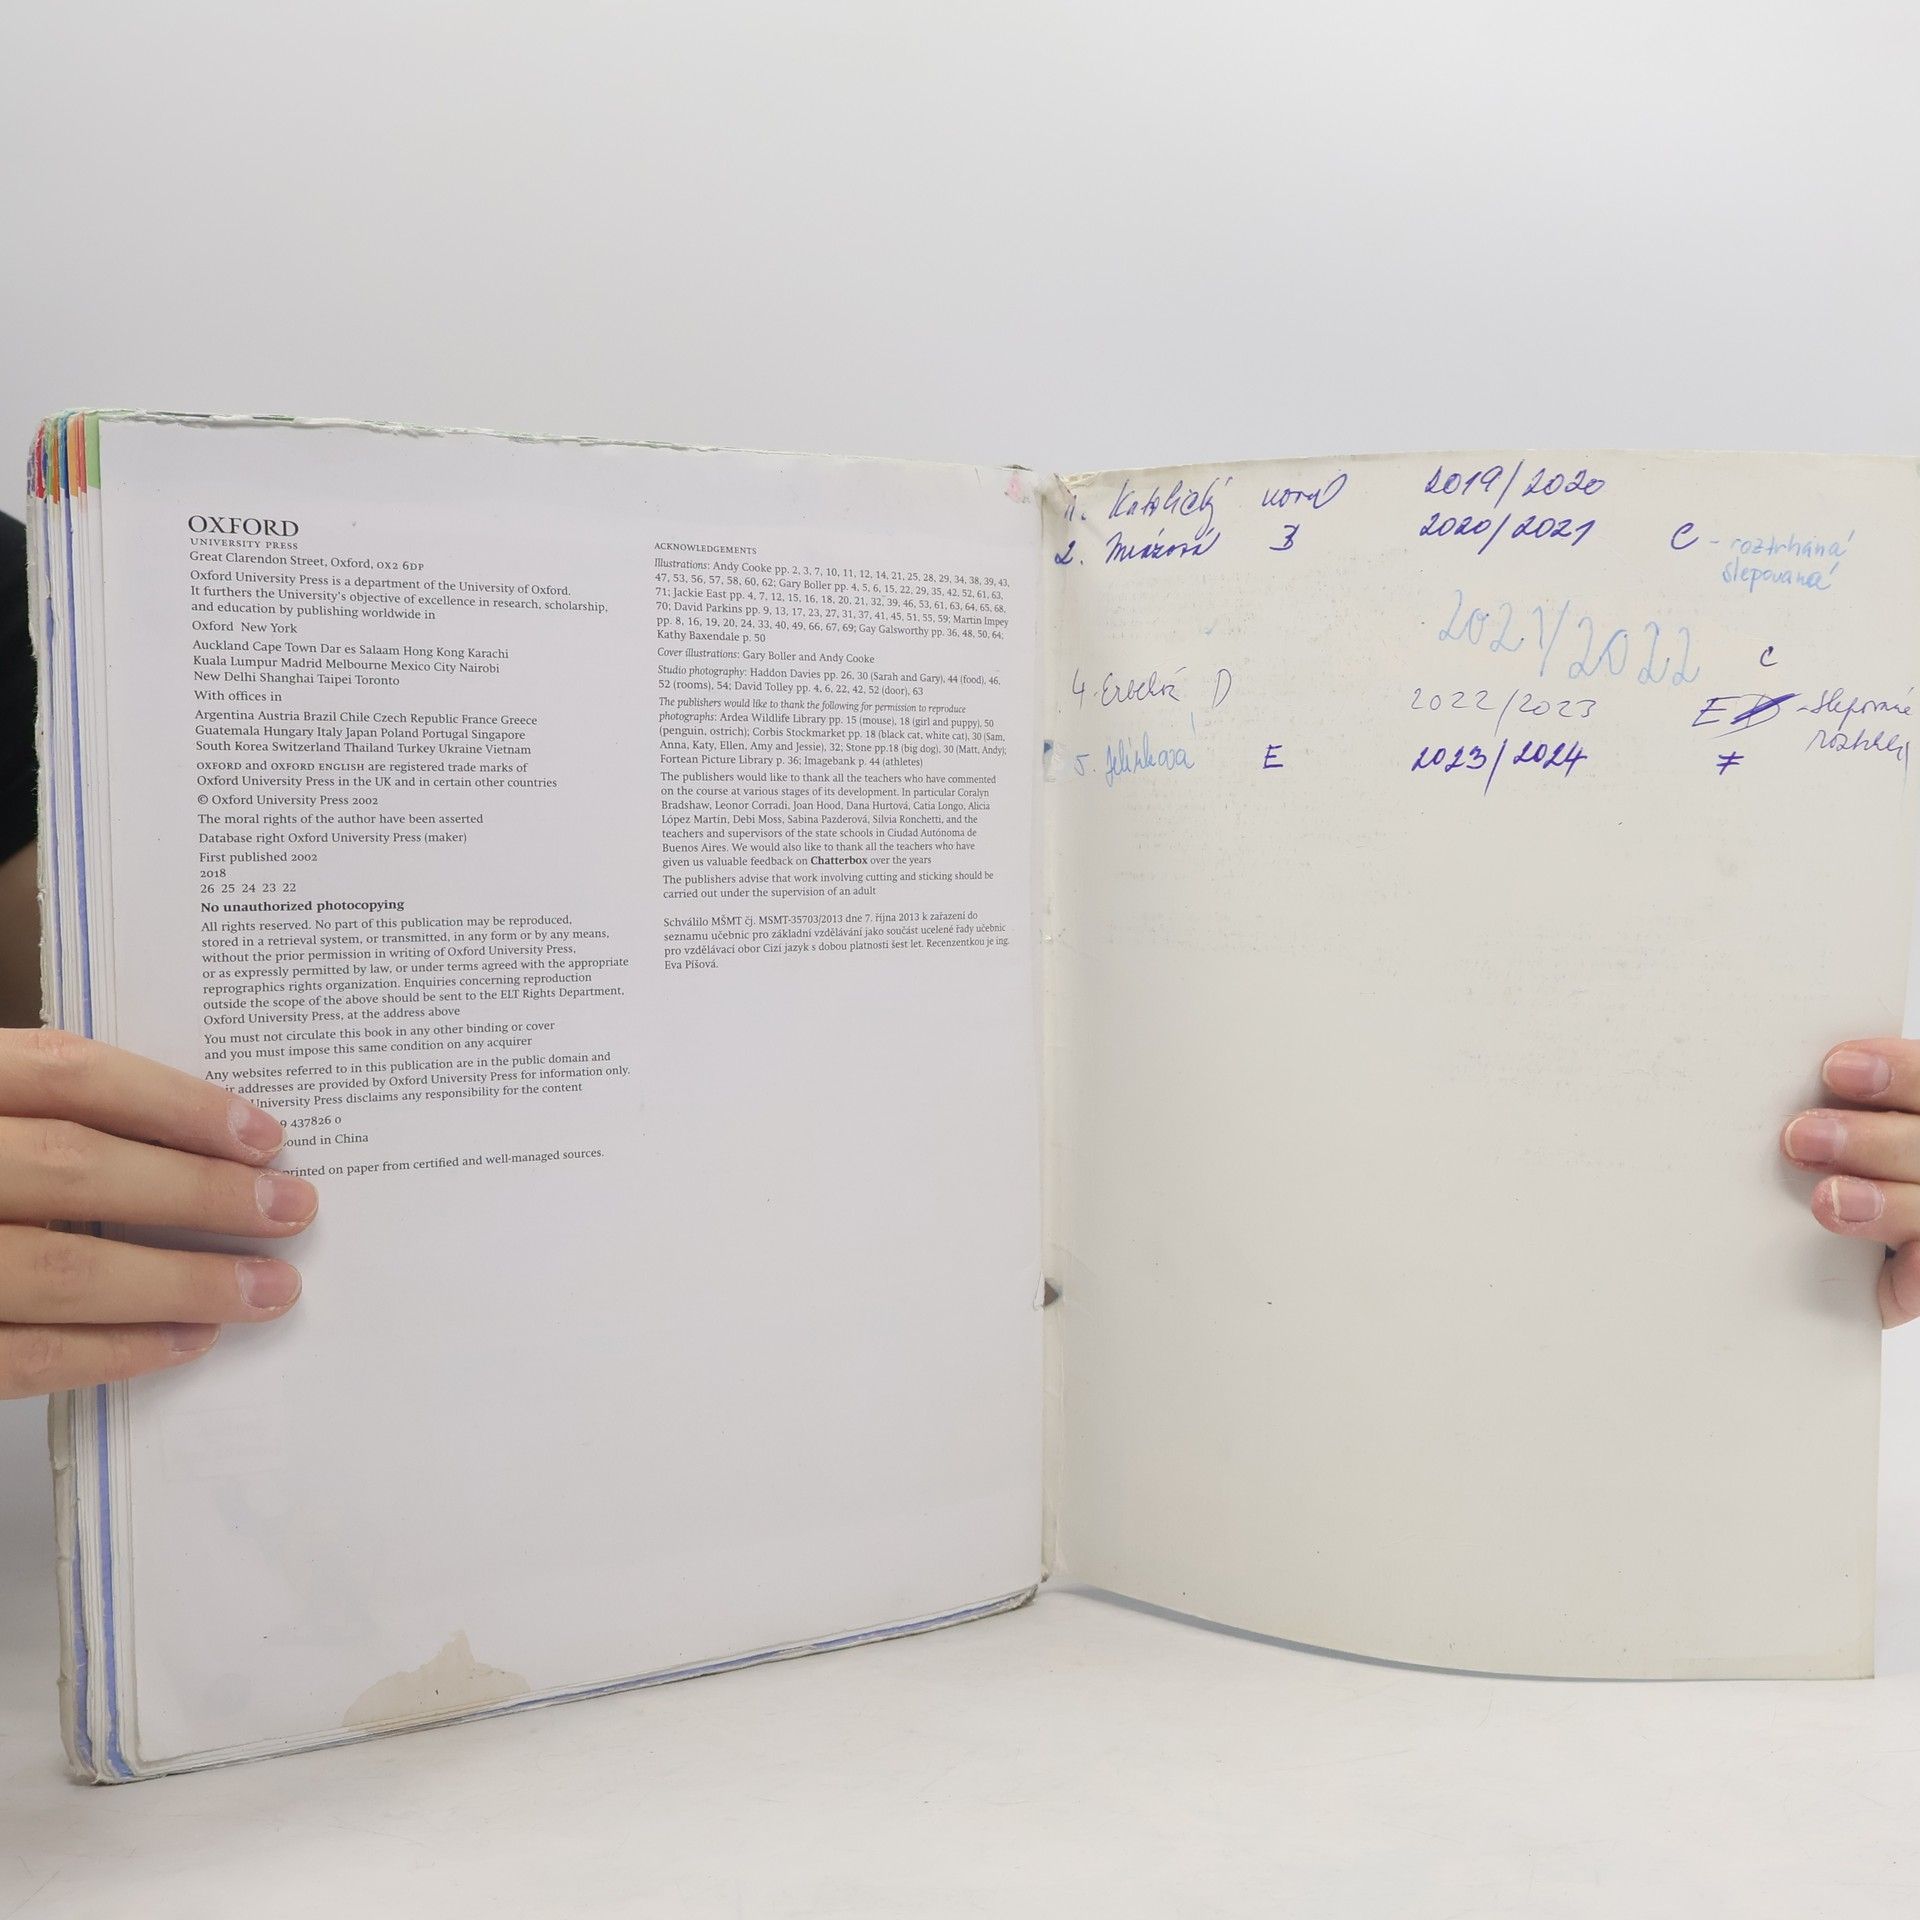 OXFORD
UNIVERSITY PRESS
Great Clarendon Street, Oxford, OX2 6DP
Oxford University Press is a department of the University of Oxford.
It furthers the University's objective of excellence in research, scholarship,
and education by publishing worldwide in
Oxford New York
Auckland Cape Town Dar es Salaam Hong Kong Karachi
Kuala Lumpur Madrid Melbourne Mexico City Nairobi
New Delhi Shanghai Taipei Toronto
With offices in
Argentina Austria Brazil Chile Czech Republic France Greece
Guatemala Hungary Italy Japan Poland Portugal Singapore
South Korea Switzerland Thailand Turkey Ukraine Vietnam
OXFORD and OXFORD ENGLISH are registered trade marks of
Oxford University Press in the UK and in certain other countries
© Oxford University Press 2002
The moral rights of the author have been asserted
Database right Oxford University Press (maker)
First published 2002
2018
26 25 24 23 22
No unauthorized photocopying
All rights reserved. No part of this publication may be reproduced,
stored in a retrieval system, or transmitted, in any form or by any means,
without the prior permission in writing of Oxford University Press,
or as expressly permitted by law, or under terms agreed with the appropriate
reprographics rights organization. Enquiries concerning reproduction
outside the scope of the above should be sent to the ELT Rights Department,
Oxford University Press, at the address above
You must not circulate this book in any other binding or cover
and you must impose this same condition on any acquirer
Any websites referred to in this publication are in the public domain and
addresses are provided by Oxford University Press for information only.
University Press disclaims any responsibility for the content
9 437826 0
in China
printed on paper from certified and well-managed sources.
ACKNOWLEDGEMENTS
Illustrations: Andy Cooke pp. 2, 3, 7, 10, 11, 12, 14, 21, 25, 28, 29, 34, 38, 39, 43,
47, 53, 56, 57, 58, 60, 62; Gary Boller pp. 4, 5, 6, 15, 22, 29, 35, 42, 52, 61, 63,
71; Jackie East pp. 4, 7, 12, 15, 16, 18, 20, 21, 32, 39, 46, 53, 61, 63, 64, 65, 68,
70; David Parkins pp. 9, 13, 17, 23, 27, 31, 37, 41, 45, 51, 55, 59; Martin Impey
pp. 8, 16, 19, 20, 24, 33, 40, 49, 66, 67, 69; Gay Galsworthy pp. 36, 48, 50, 64;
Kathy Baxendale p. 50
Cover illustrations: Gary Boller and Andy Cooke
Studio photography: Haddon Davies pp. 26, 30 (Sarah and Gary), 44 (food), 46,
52 (rooms), 54; David Tolley pp. 4, 6, 22, 42, 52 (door), 63
The publishers would like to thank the following for permission to reproduce
photographs: Ardea Wildlife Library pp. 15 (mouse), 18 (girl and puppy), 50
(penguin, ostrich); Corbis Stockmarket pp. 18 (black cat, white cat), 30 (Sam,
Anna, Katy, Ellen, Amy and Jessie), 32; Stone pp.18 (big dog), 30 (Matt, Andy);
Fortean Picture Library p. 36; Imagebank p. 44 (athletes)
The publishers would like to thank all the teachers who have commented
on the course at various stages of its development. In particular Coralyn
Bradshaw, Leonor Corradi, Joan Hood, Dana Hurtová, Catia Longo, Alicia
López Martín, Debi Moss, Sabina Pazderová, Silvia Ronchetti, and the
teachers and supervisors of the state schools in Ciudad Autónoma de
Buenos Aires. We would also like to thank all the teachers who have
given us valuable feedback on Chatterbox over the years
The publishers advise that work involving cutting and sticking should be
carried out under the supervision of an adult
Schválilo MŠMT čj. MSMT-35703/2013 dne 7. října 2013 k zařazení do
seznamu učebnic pro základní vzdělávání jako součást ucelené řady učebnic
pro vzdělávací obor Cizí jazyk s dobou platnosti šest let. Recenzentkou je ing.
Eva Píšová.
1. Katolický 2019/2020
2. B 2020/2021 C - roztrhaná
slepovaná
2021/2022 C
4. D 2022/2023 E
5. Jelínková E 2023/2024